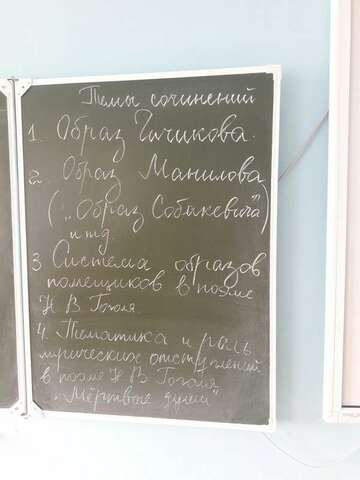 Темы сочинений
1. Образ Чичикова.
2. Образ Манилова
("Образ Собакевича")
и тд.
3 Система образов
помещиков в поэме
Н В. Гоголя.
4. Тематика и роль
лирических отступлений
в поэме Н В. Гоголя
"Мёртвые души"